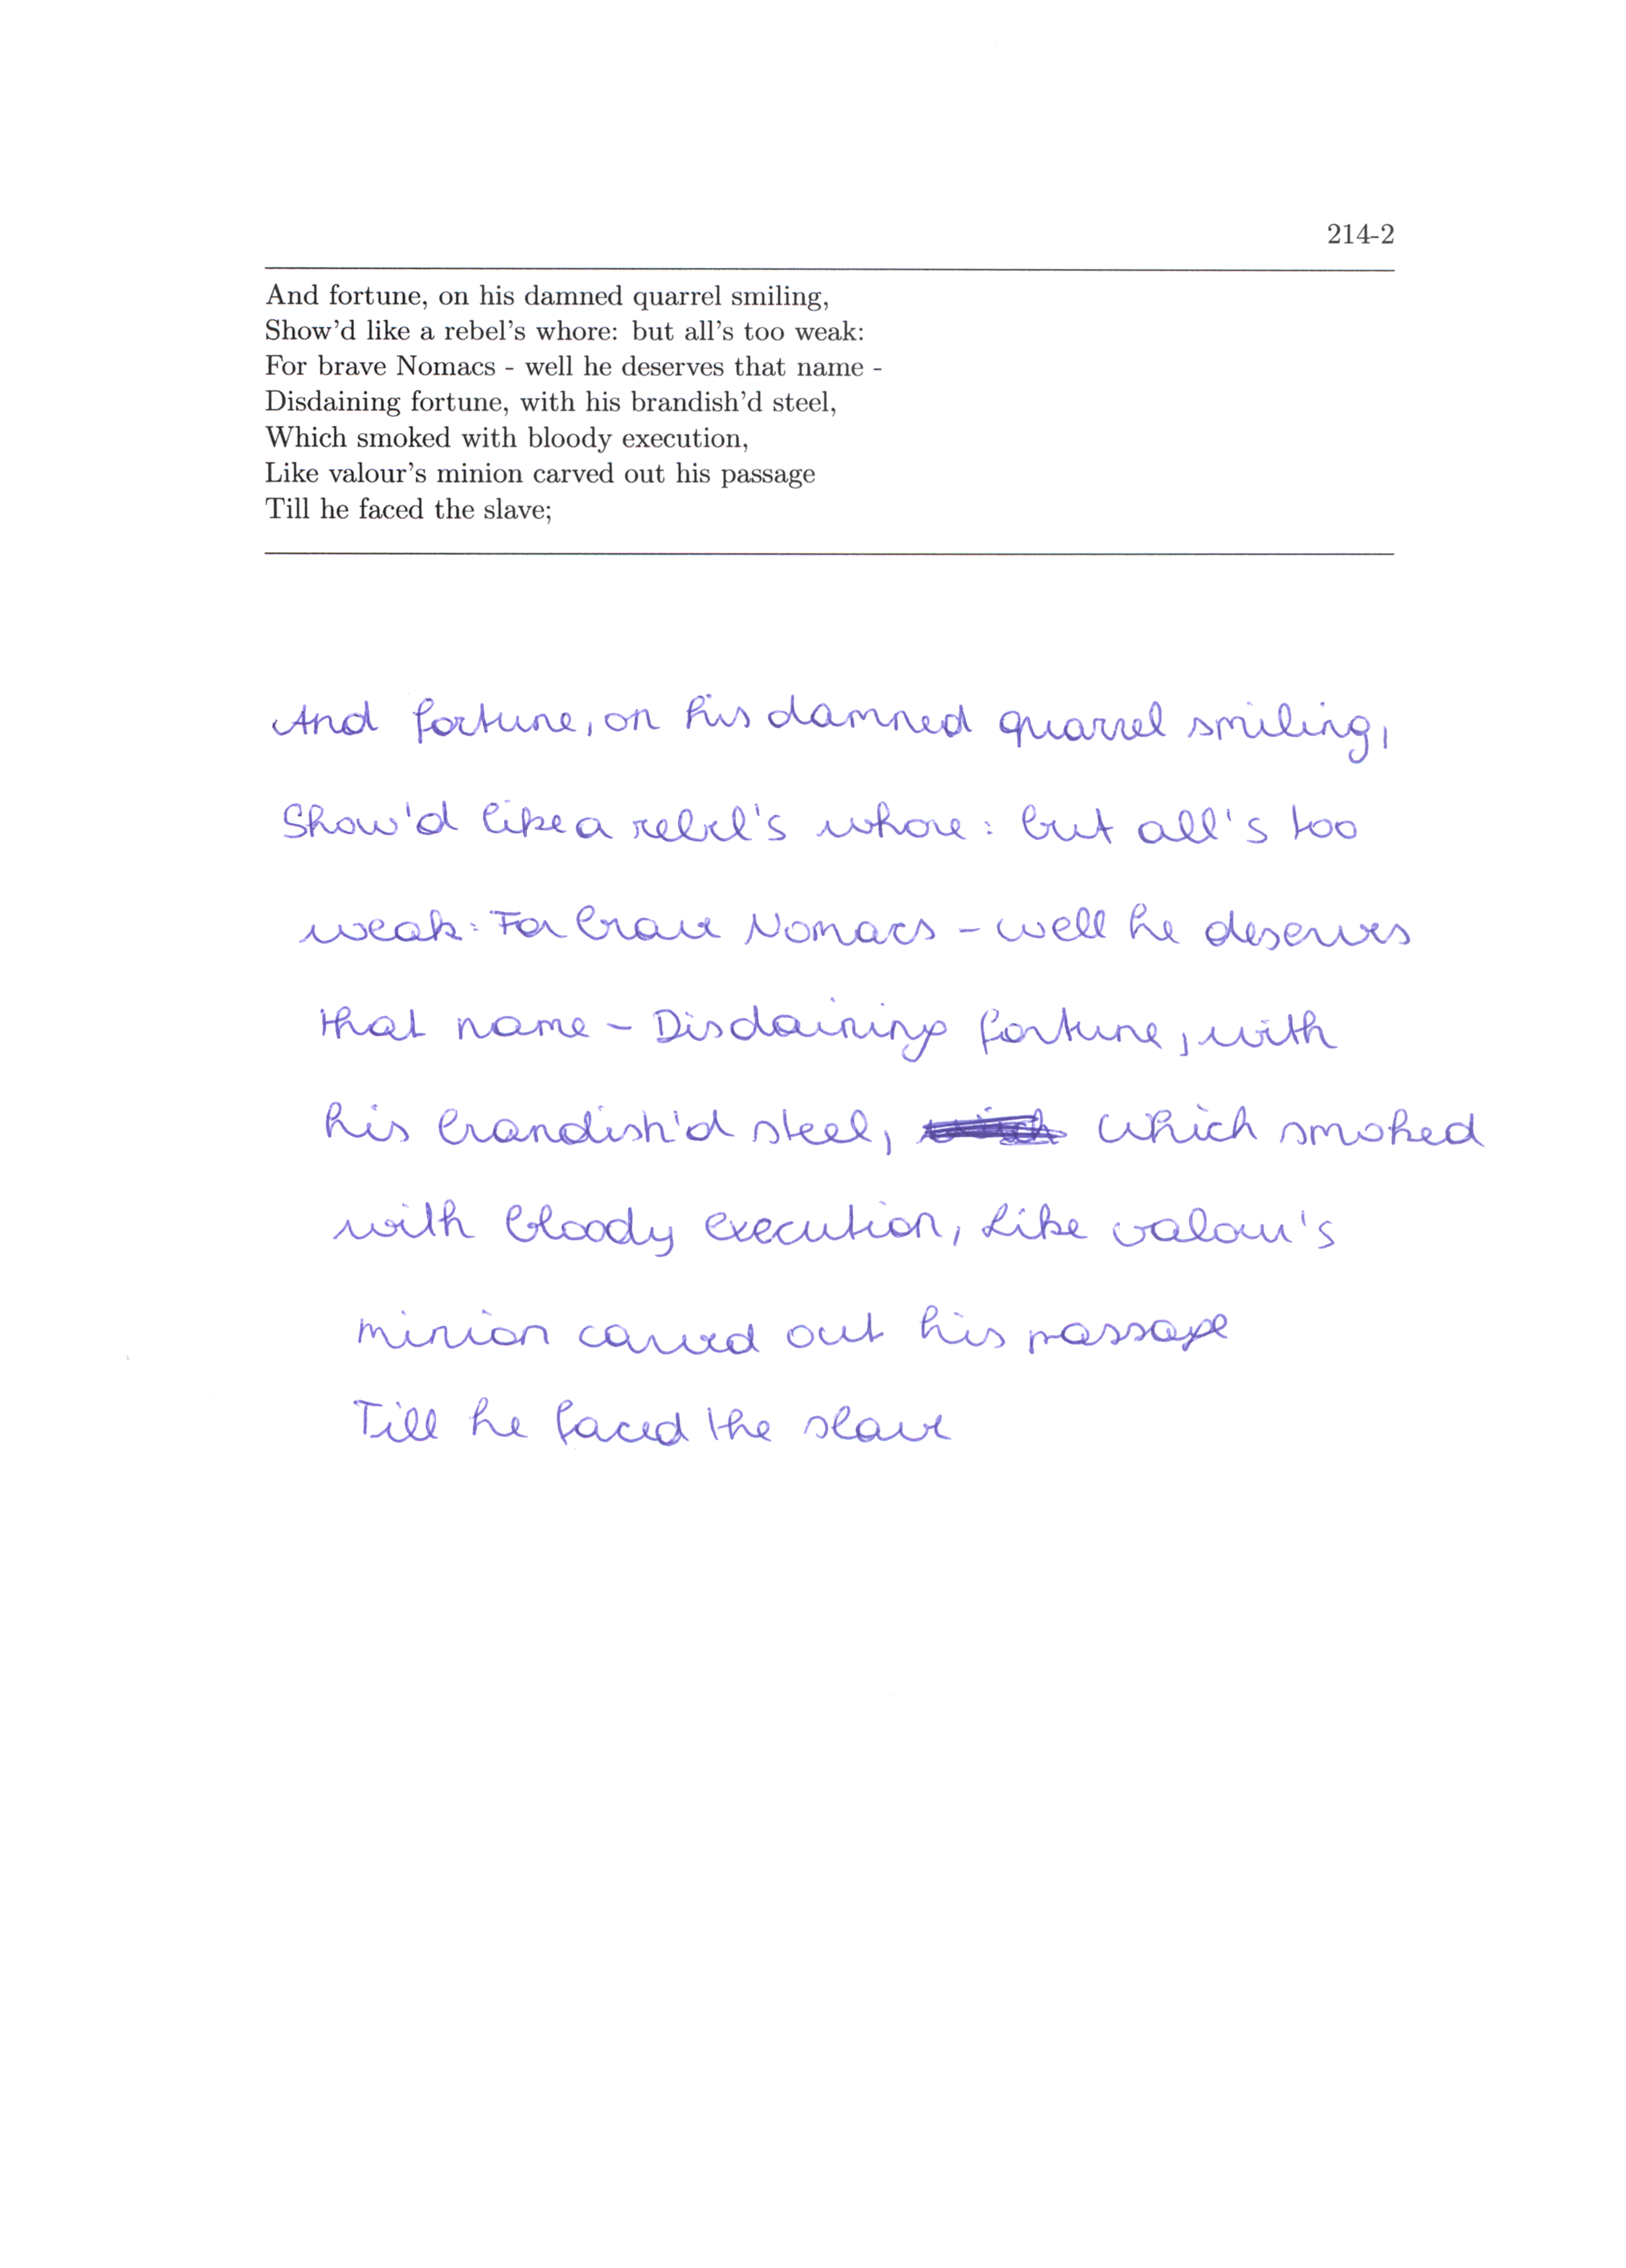 214-2
And fortune, on his damned quarrel smiling,
Show'd like a rebel's whore: but all's too weak:
For brave Nomacs - well he deserves that name -
Disdaining fortune, with his brandish'd steel,
Which smoked with bloody execution,
Like valour's minion carved out his passage
Till he faced the slave;
And fortune, on his damned quarrel smiling,
Show'd like a rebel's whore: but all's too
weak: For brave Nomacs - well he deserves
that name - Disdaining fortune, with
his brandish'd steel, Which smoked
with bloody execution, Like valour's
minion carved out his passage
Till he faced the slave